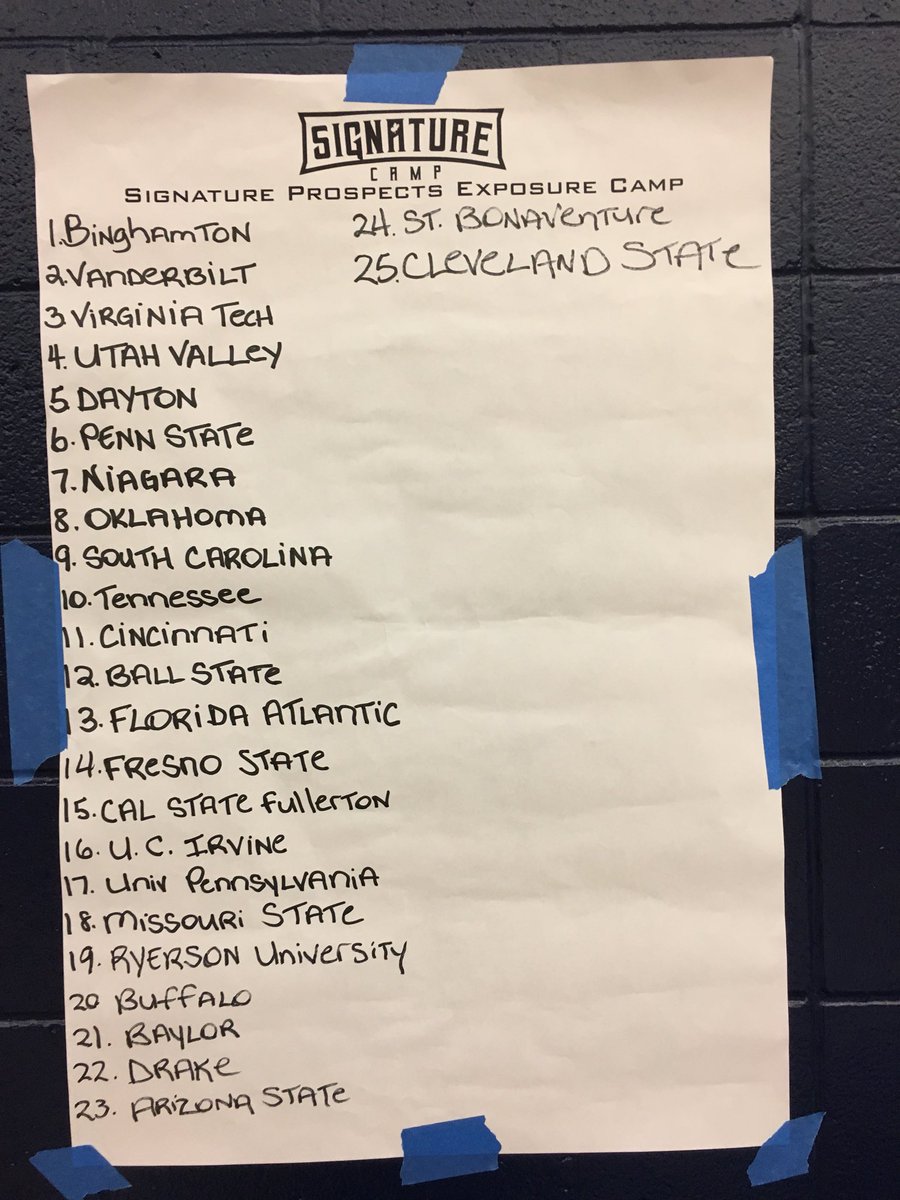 SIGNATURE
CAMP
SIGNATURE PROSPECTS EXPOSURE CAMP
1. BinghamTON
2. VANDERBILT
3. VIRGINIA TECH
4. UTAH VALLEY
5. DAYTON
6. PENN STATE
7. NIAGARA
8. OKLAHOMA
9. SOUTH CAROLINA
10. Tennessee
11. CINCINNATI
12. BALL STATE
13. FLORIDA ATLANTIC
14. FRESNO STATE
15. CAL STATE FULLERTON
16. U.C. IRVINE
17. UNIV PENNSYLVANIA
18. MISSOURI STATE
19. RYERSON UNIVERSITY
20 BUFFALO
21. BAYLOR
22. DRAKE
23. ARIZONA STATE
24. ST. BONAVENTURE
25. CLEVELAND STATE